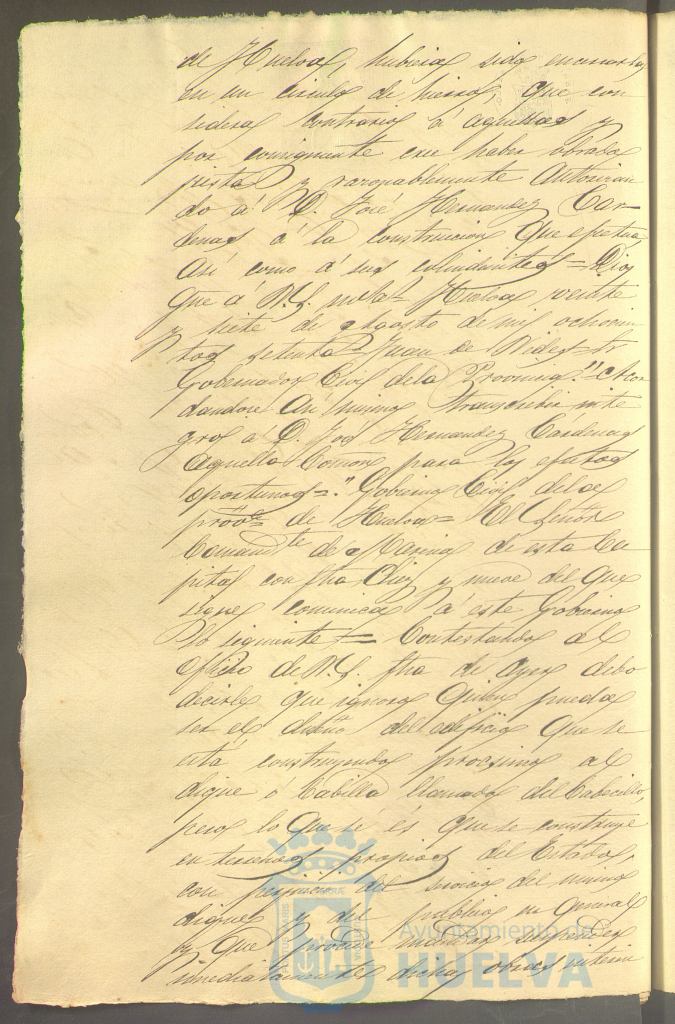 de Huelva, hubiera sido encerrarla
en un circulo de hierro, que con
sidera contrario á aquellas y
por consiguiente cree haber obrado
justa y razonablemente autorizan
do á D. José Hernandez Car-
denas á la construccion que efectua
asi como á sus colindantes = Dios
que á V.S. m.s a.s Huelva veinte
y siete de Agosto de mil ochocien
tos setenta = Juan de =
Gobernador Civil de la Provincia." Acor
dandose asi mismo transcribir inte
gro á D. José Hernandez Cardenas
aquella Comon para los efectos
oportunos = "Gobierno Civil de la
prov.a de Huelva = El Señor
Comand.te de Marina de esta Ca
pital con fha diez y nueve del que
sigue comunica á este Gobierno
lo siguiente = Contestando al
oficio de V.S. fha de ayer debo
decirle que ignoro quien pueda
ser el dueño del edificio que se
está construyendo procsimo al
dique ó Cabilla llamado del Cabecillo,
pero lo que se es que se construye
en terrenos propios del Estado,
con perjuicio del servicio del mismo
dique y del publico en general
y que procede mandar suspender
inmediatamente dichas obras interin
Ayuntamiento de
HUELVA